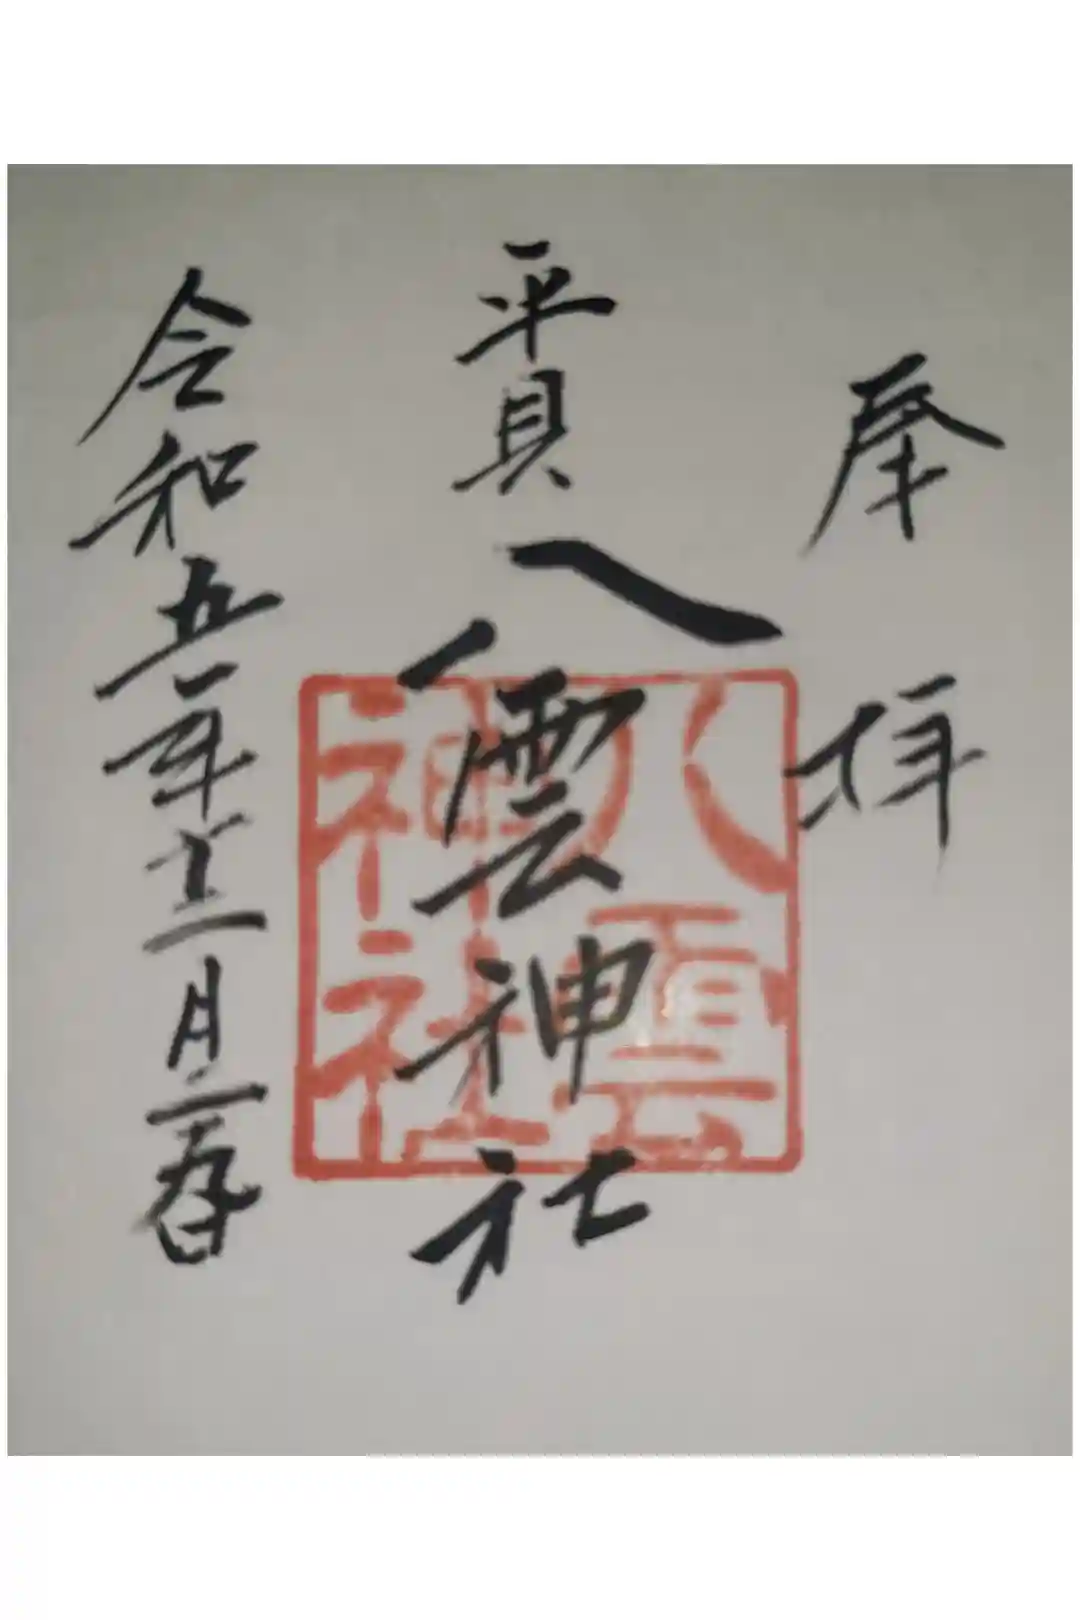 奉拝
平貝
八雲神社
八雲
神社
令和五年十二月日